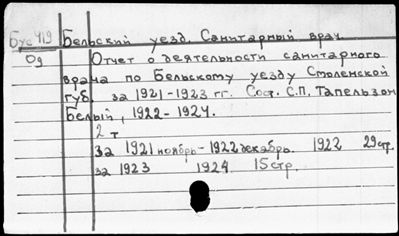 Бус 419 Бельский уезд. Санитарный врач.
Од Отчет о деятельности санитарного
врача по Бельскому уезду Смоленской
губ. за 1921-1923 гг. Сост. С.П. Тапельзон
Белый, 1922-1924.
2 т
за 1921 ноябрь-1922 декабрь. 1922 29 стр.
за 1923 1924 15 стр.